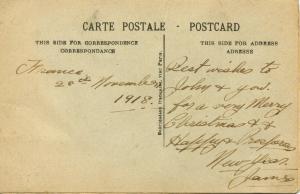 CARTE POSTALE - POSTCARD
THIS SIDE FOR CORRESPONDENCE
CORRESPONDANCE
THIS SIDE FOR ADDRESS
ADRESSE
France
20th November
1918.
Fabrication française. Visé Paris.
Best wishes to
John & you.
for a very Merry
Christmas &
Happy & Prosperous
New Year.
James